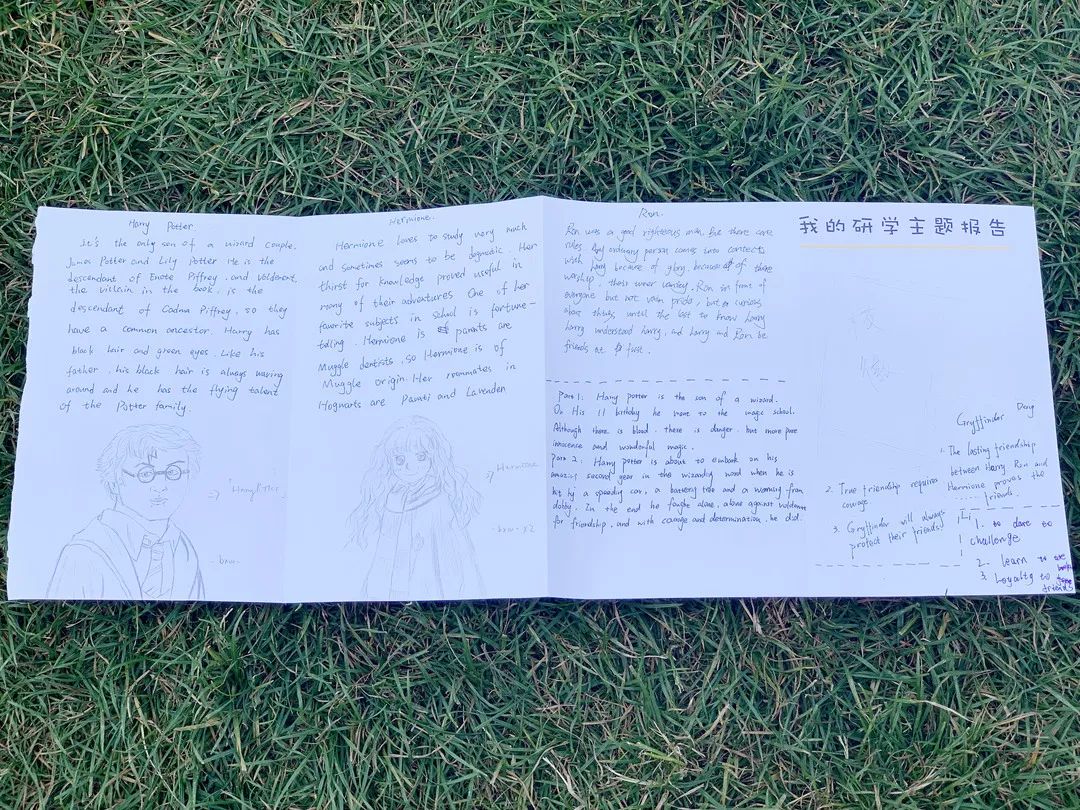 Harry Potter
It's the only son of a wizard couple.
James Potter and Lily Potter He is the
descendant of Enote Piffrey. and Voldemort,
the villain in the book. is the
descendant of Cadma Piffrey. so they
have a common ancestor. Harry has
black hair and green eyes. Like his
father. his black hair is always waving
around and he has the flying talent
of the Potter family.
"Harry Potter"
Hermione.
Hermione loves to study very much
and sometimes seems to be dogmatic. Her
thirst for knowledge proved useful in
many of their adventures One of her
favorite subjects in School is fortune-
telling. Hermione is parents are
Muggle dentists, so Hermione is of
Muggle origin. Her roommates in
Hogwarts are Pavati and Lavender
Hermione
Ron.
Ron was a good righteous man. But there are
rules. Any ordinary person comes into contects
with harry because of glory, because of there
worship. these wear Ron in front of
everyone but not vain pride, but curious
about things, until the last to know harry
harry understood harry, and harry and Ron be
friends at first.
Part 1: Harry potter is the son of a wizard.
On His 11 birthday he went to the magic school.
Although there is blood. there is danger. but more pure
innocence and wonderful magic.
Part 2: Harry potter is about to embark on his
amazing second year in the wizarding word when he is
hit by a speeding car, a battering tree and a warning from
dobby. In the end he fought alone, alone against voldemor
for friendship, and with courage and determination, he did.
我的研学主题报告
Gryffindor Deng
1. The lasting friendship
between Harry. Ron and
Hermione proves the
friends.
2. True friendship requires
courage
3. Gryffindor will always
protect their friends
1. to dare to
challenge
2. learn to
3. Loyalty to
friends